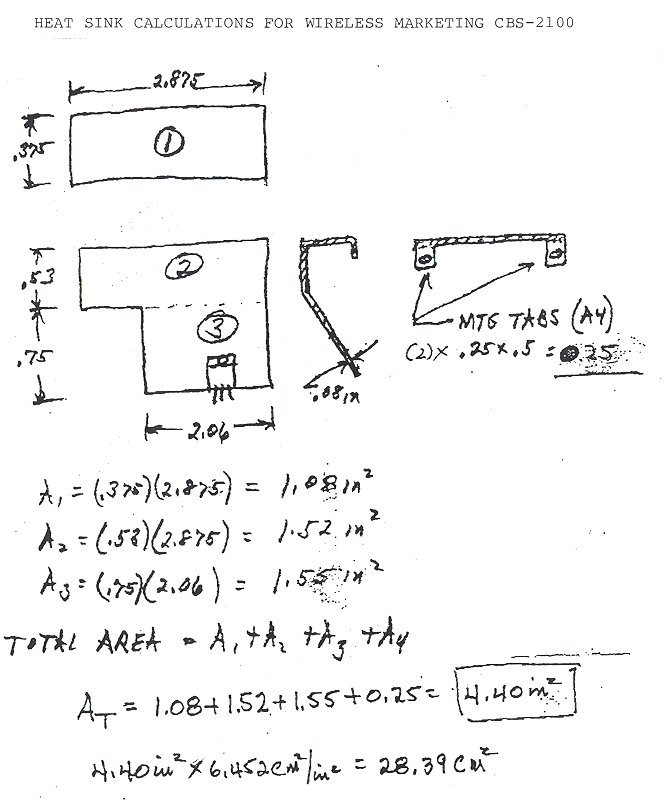 HEAT SINK CALCULATIONS FOR WIRELESS MARKETING CBS-2100
2.875
.375
1
.53
2
.75
3
2.06
.08in
MTG TABS (A4)
(2)x .25x.5 = 0.25
A1 = (.375)(2.875) = 1.08 in²
A2 = (.53)(2.875) = 1.52 in²
A3 = (.75)(2.06) = 1.55 in²
TOTAL AREA = A1 + A2 + A3 + A4
AT = 1.08+1.52+1.55+0.25= 4.40 in²
4.40in² x 6.452cm²/in² = 28.39 cm²